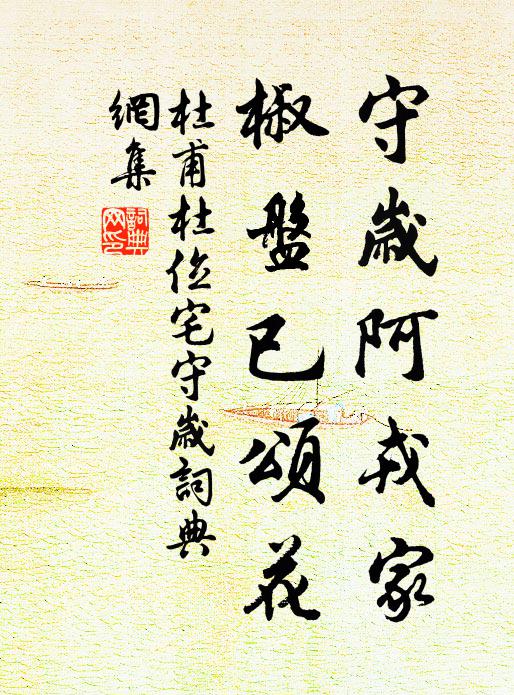 守歲阿戎家
椒盤已頌花
杜甫杜位宅守歲詞典
網集
詞典
网印